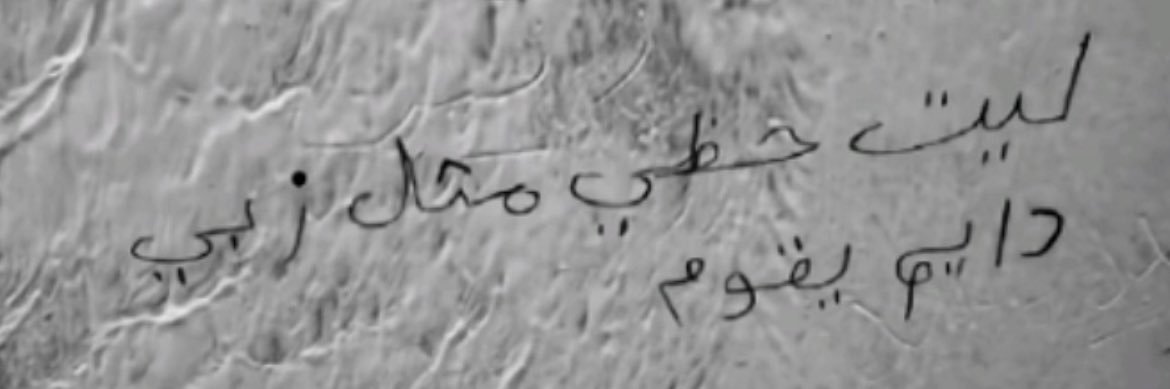 ليت حظي مثل زبي
دايم يقوم